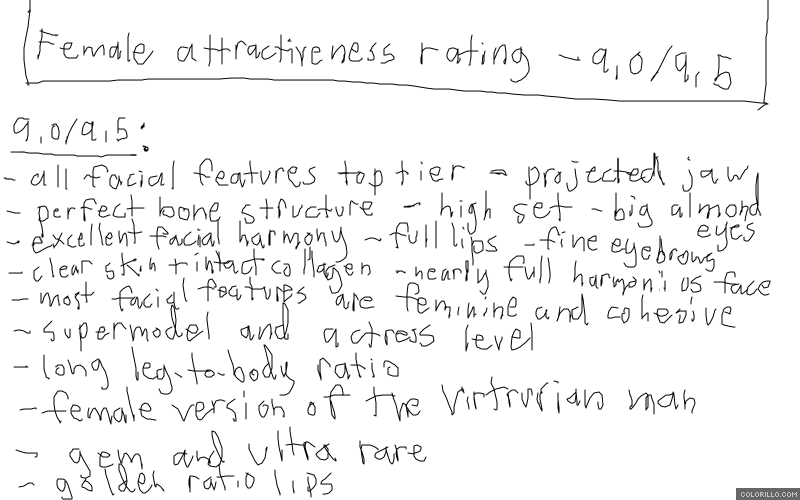 Female attractiveness rating - 9,0/9,5
9,0/9,5:
- all facial features top tier - projected jaw
- perfect bone structure - high set - big almond eyes
- excellent facial harmony - full lips - fine eyebrows
- clear skin + intact collagen - nearly full harmonious face
- most facial features are feminine and cohesive
- supermodel and actress level
- long leg-to-body ratio
- female version of the Virtruvian man
- gem and ultra rare
- golden ratio lips
COLORILLO.COM